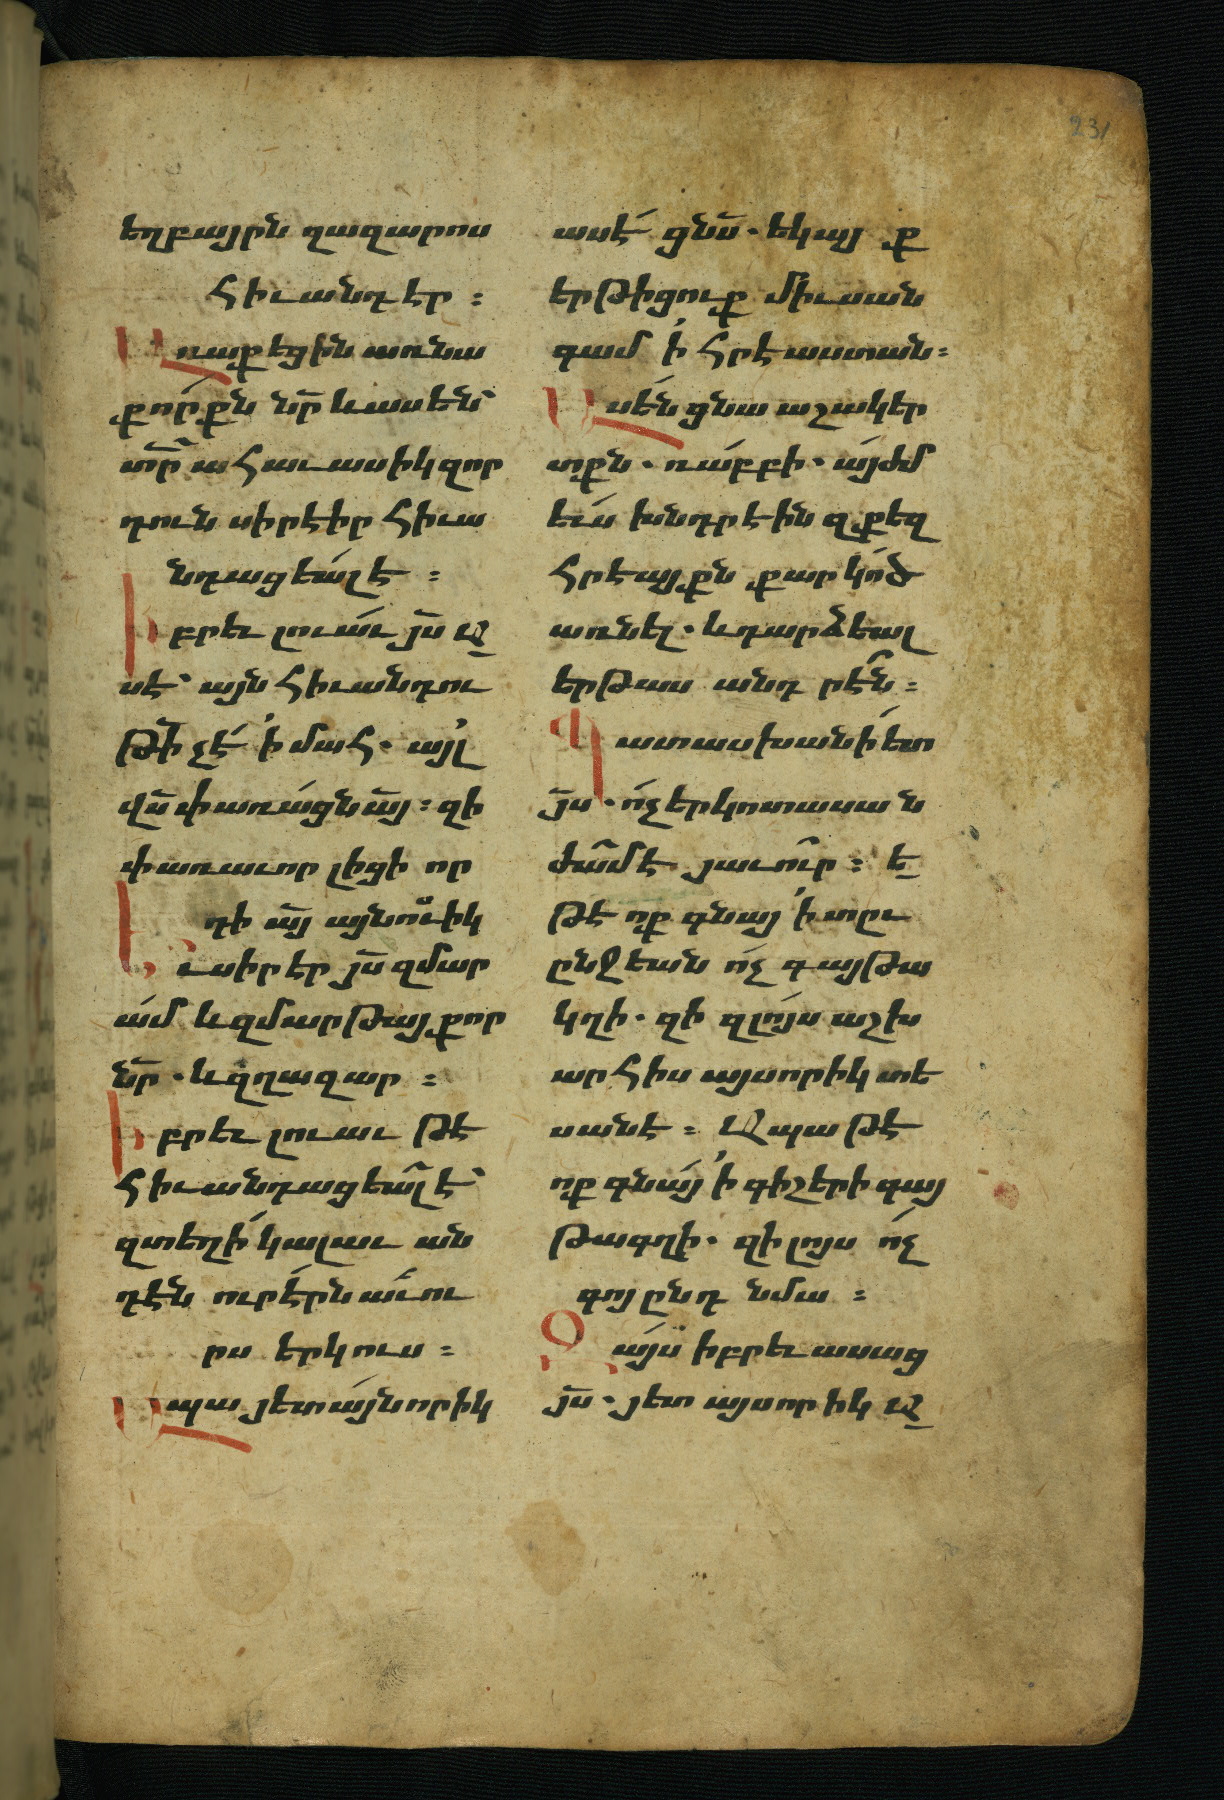 231
եղբայրն ղազարոս
հիւանդ էր ։
Առաքեցին առ նա
քորքն նր̄ և ասեն՝
տր̄ ահաւասիկ զոր
դուն սիրէիր հիւա
նդացեալ է ։
Իբրեւ լուաւ յս̄ ա
սէ՝ այն հիւանդու
թի̄ չէ ՚ի մահ · այլ
վս̄ փառացն ա̄յ ։ զի
փառաւոր լիցի որ
դի ա̄յ այնուիկ
Եւ սիրէր յս̄ զմար
ամ և զմարթայ քոր
նր̄ · և զղազար ։
Իբրեւ լուաւ թէ
հիւանդացեալ է՝
զտեղի կալաւ ան
դէն ուր էրն աւու
րս երկուս ։
Ապա յետ այնորիկ
ասէ ցնս̄ · եկայք
երթիցուք միւսան
գամ ՚ի հրէաստան ։
Ասեն ցնա աշակեր
տքն · ռաբբի · այժմ
եւս խնդրէին զքեզ
հրեայքն քարկոծ
առնել · և դարձեալ
երթաս անդրէն ։
Պատասխանի ետ
յս̄ · ոչ երկոտասան
ժամ է յաւուր ։ ե
թէ ոք գնայ ՚ի տըւ
ընջեան ոչ գայթա
կղի · զի զլոյս աշխ
արհիս այսորիկ տե
սանէ ։ Ապա թէ
ոք գնայ ՚ի գիշերի գայ
թագղի · զի լոյս ոչ
գոյ ընդ նմա ։
Զայս իբրեւ ասաց
յս̄ · յետ այսորիկ ա